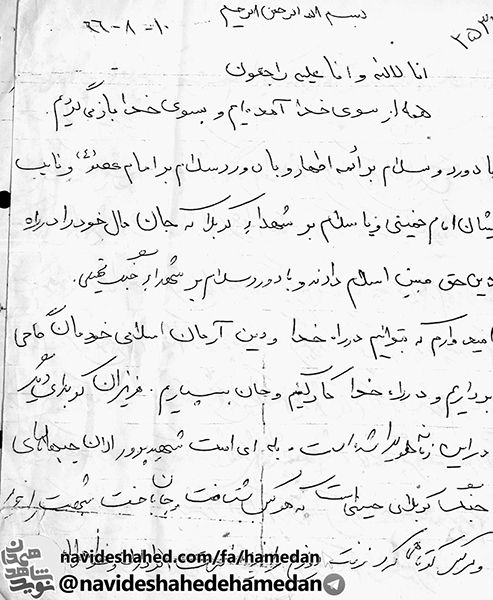 بسم الله الرحمن الرحیم
۱۰-۸-۶۶
۲۵۳
انا لله و انا علیه راجعون
همه از سوی خدا آمده‌ایم و بسوی خدا باز می‌گردیم.
با درود و سلام بر ائمه اطهار و با درود و سلام بر امام عصر (ع) و نایب
ایشان امام خمینی و با سلام بر شهدای کربلا که جان مال خود را در راه
دین حق مبین اسلام دادند و با درود و سلام بر شهدای جنگ تحمیلی.
امیدوارم که بتوانیم در راه خدا و دین آرمان اسلامی خودمان گامی
برداریم و در راه خدا کار کنیم و جان بسپاریم. عزیزان کربلای دیگر
در این زمانه هویدا شده است. بله ای امت شهید پرور ایران جبهه‌های
جنگ کربلای حسینی است که هر کس شتافت و جانباخت شهادت را
و هر کس کوتاهی کرد
navideshahed.com/fa/hamedan
@navideshahedehamedan
نوید شاهد همدان